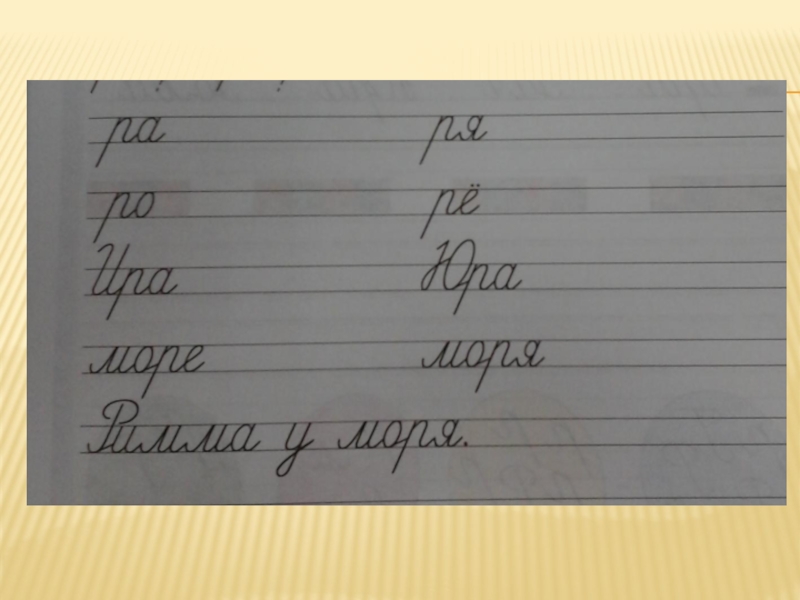 ра ря
ро рё
Ира Юра
море моря
Римма у моря.